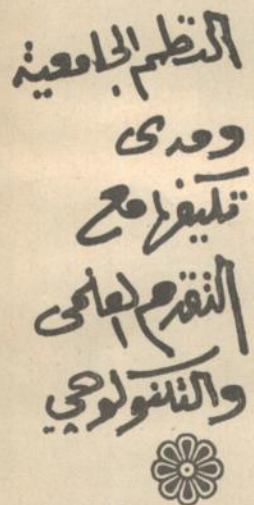 النظم الجامعية
ومدى
تكيفها مع
التقدم العلمى
والتكنولوجي